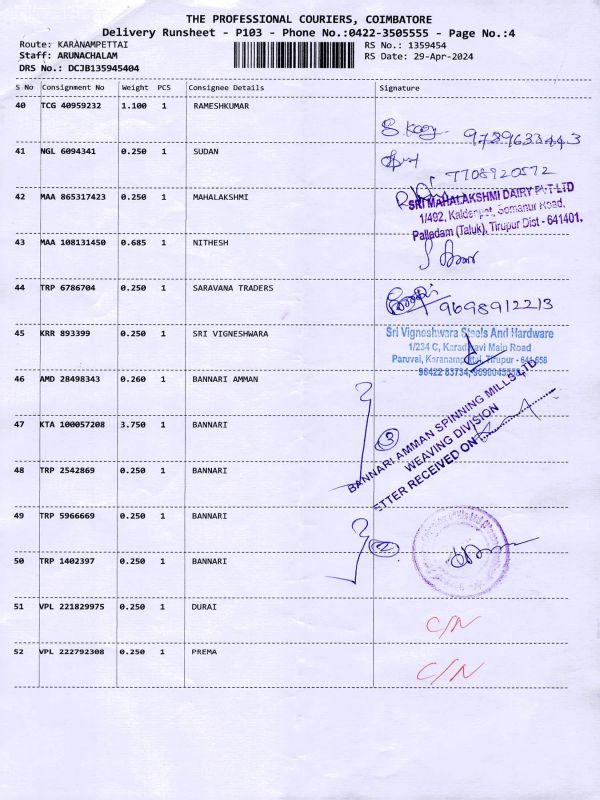 THE PROFESSIONAL COURIERS, COIMBATORE
Delivery Runsheet - P103 - Phone No.:0422-3505555 - Page No.:4
Route: KARANAMPETTAI
RS No.: 1359454
Staff: ARUNACHALAM
RS Date: 29-Apr-2024
DRS No.: DCJB135945404
S No Consignment No Weight PCS Consignee Details Signature
40 TCG 40959232 1.100 1 RAMESHKUMAR
9789633443
41 NGL 6094341 0.250 1 SUDAN
7708920572
42 MAA 865317423 0.250 1 MAHALAKSHMI
SRI MAHALAKSHMI DAIRY PVT LTD
1/492, Somanur Road,
Palladam (Taluk), Tirupur Dist - 641401.
43 MAA 108131450 0.685 1 NITHESH
44 TRP 6786704 0.250 1 SARAVANA TRADERS
9698912213
45 KRR 893399 0.250 1 SRI VIGNESHWARA
Sri Vigneshwara Steels And Hardware
1/234 C, Main Road
Paruvai, Tirupur
98422 83734,
46 AMD 28498343 0.260 1 BANNARI AMMAN
47 KTA 100057208 3.750 1 BANNARI
3
BANNARI AMMAN SPINNING MILLS LTD
WEAVING DIVISION
ETTER RECEIVED ON
48 TRP 2542869 0.250 1 BANNARI
49 TRP 5966669 0.250 1 BANNARI
2
50 TRP 1402397 0.250 1 BANNARI
51 VPL 221829975 0.250 1 DURAI
C/N
52 VPL 222792308 0.250 1 PREMA
C/N